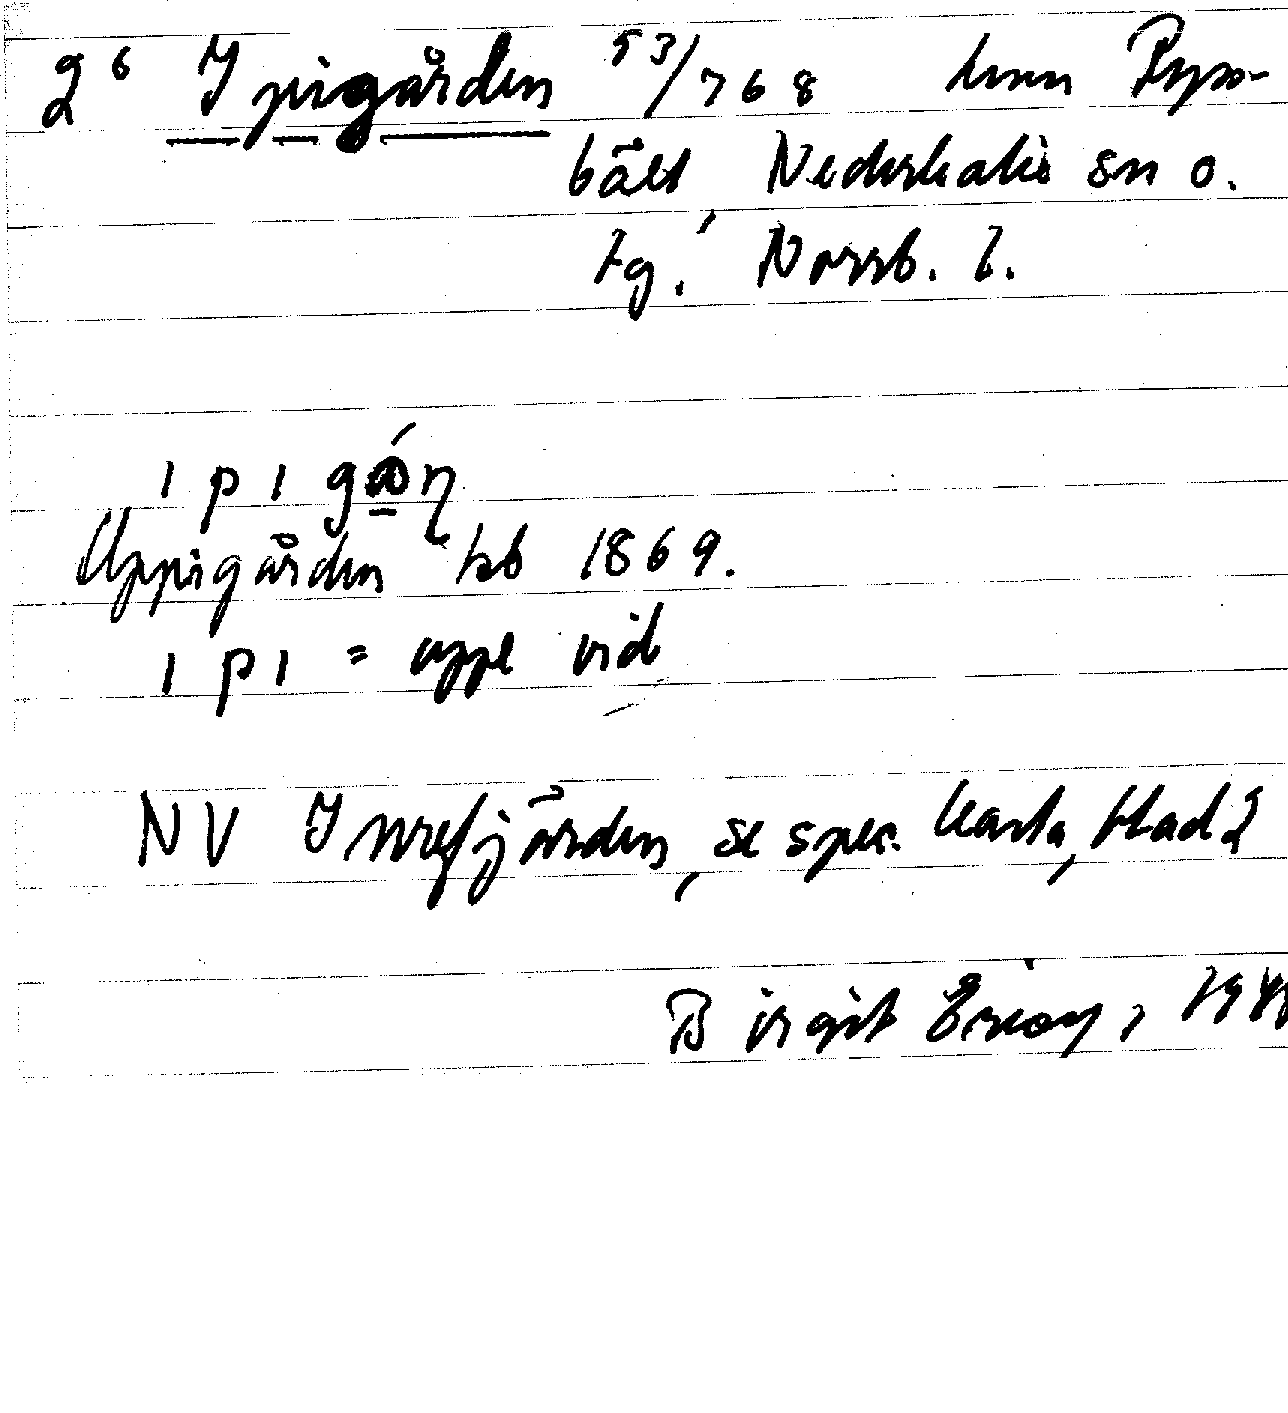 2⁶ Ipigården 53/768 hmn Ryss-
bält, Nederkalix sn o.
tg. Norrb. l.
ı p ı gǻn
Uppigården kb 1869.
ı p ı = uppe vid
NV Inrefjärden, se spec. karta, blad 2
Birgit Ericson, 194